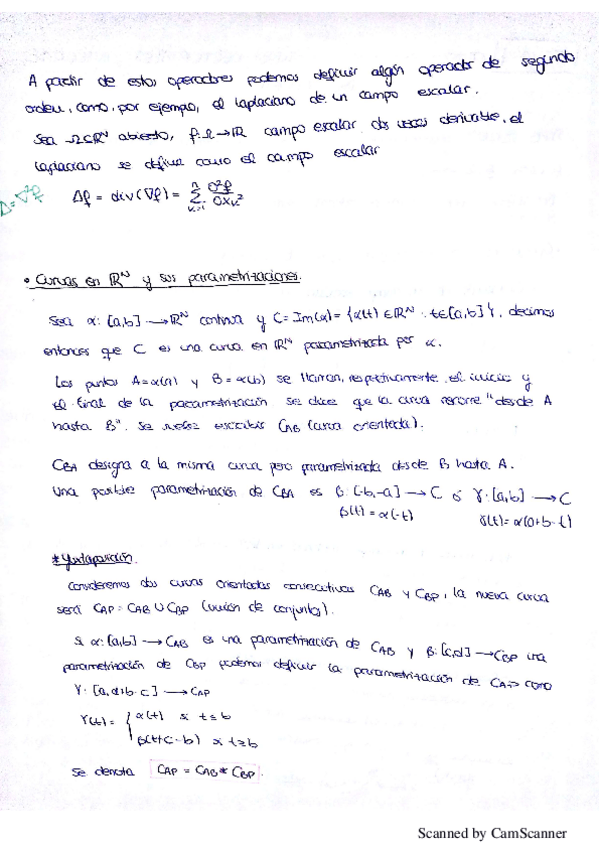 A partir de estos operadores podemos definir algún operador de segundo
orden, como, por ejemplo, el laplaciano de un campo escalar.
Sea Ω⊂ℝᴺ abierto, f:Ω→ℝ campo escalar dos veces derivable, el
laplaciano se define como el campo escalar
Δ=∇²f
Δf = div(∇f) = Σ ∂²f/∂xₖ²
• Curvas en ℝᴺ y sus parametrizaciones.
Sea α: [a,b] → ℝᴺ continua y C = Im(α) = {α(t) ∈ ℝᴺ : t∈[a,b]}, decimos
entonces que C es una curva en ℝᴺ parametrizada por α.
Los puntos A=α(a) y B=α(b) se llaman, respectivamente, el inicio y
el final de la parametrización se dice que la curva recorre "desde A
hasta B". Se suele escribir C_AB (curva orientada).
C_BA designa a la misma curva pero parametrizada desde B hasta A.
Una posible parametrización de C_BA es β: [-b,-a] → C ó γ: [a,b] → C
β(t) = α(-t) γ(t) = α(a+b-t)
* Yuxtaposición.
Consideremos dos curvas orientadas consecutivas C_AB y C_BP, la nueva curva
será C_AP = C_AB ∪ C_BP (unión de conjuntos).
Si α: [a,b] → C_AB es una parametrización de C_AB y β: [c,d] → C_BP una
parametrización de C_BP podemos definir la parametrización de C_AP como
γ: [a, d+b-c] → C_AP
γ(t) = { α(t) si t≤b
β(t+c-b) si t≥b
Se denota C_AP = C_AB * C_BP.
Scanned by CamScanner